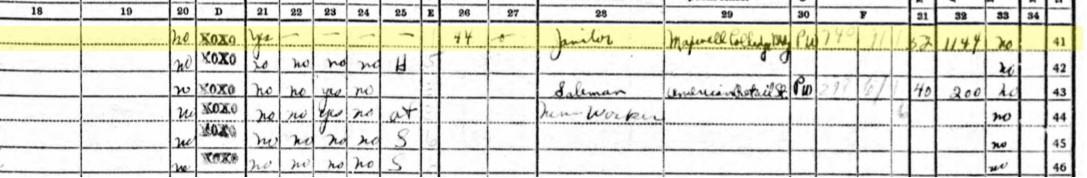 18 19 20 D 21 22 23 24 25 E 26 27 28 29 30 F 31 32 33 34
no X0X0 Yes — — — — 44 0 Janitor Maxwell College Pw 52 1144 no 41
no X0X0 no no no no H 5 no 42
no X0X0 no no yes no Saleman American Retail Pw 40 200 no 43
no X0X0 no no Yes no ot New Worker no 44
no X0X0 no no no no S no 45
no X0X0 no no no no S no 46